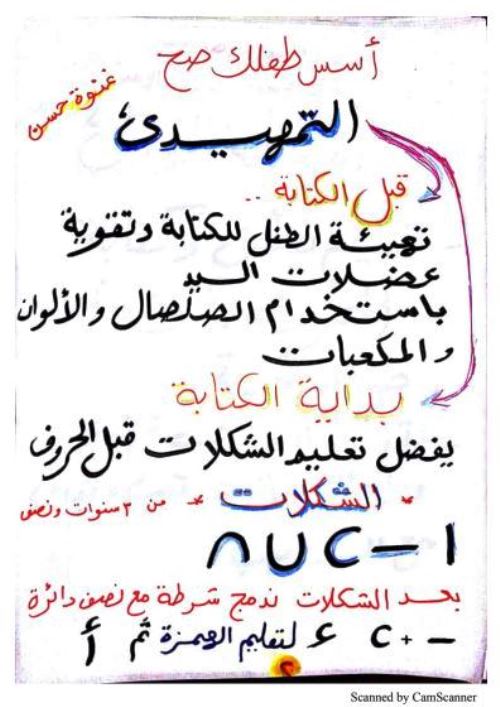 أسس طفلك صح
غنوة حسن
التمهيدى
قبل الكتابة ..
تهيئة الطفل للكتابة وتقوية
عضلات اليد
باستخدام الصلصال والألوان
والمكعبات
بداية الكتابة
يفضل تعليم الشكلات قبل الحروف
* الشكلات * من ٣ سنوات ونصف
ا — C U ∩
بعد الشكلات ندمج شرطة مع نصف دائرة
— + C ء لتعليم الهمزة ثم أ
Scanned by CamScanner